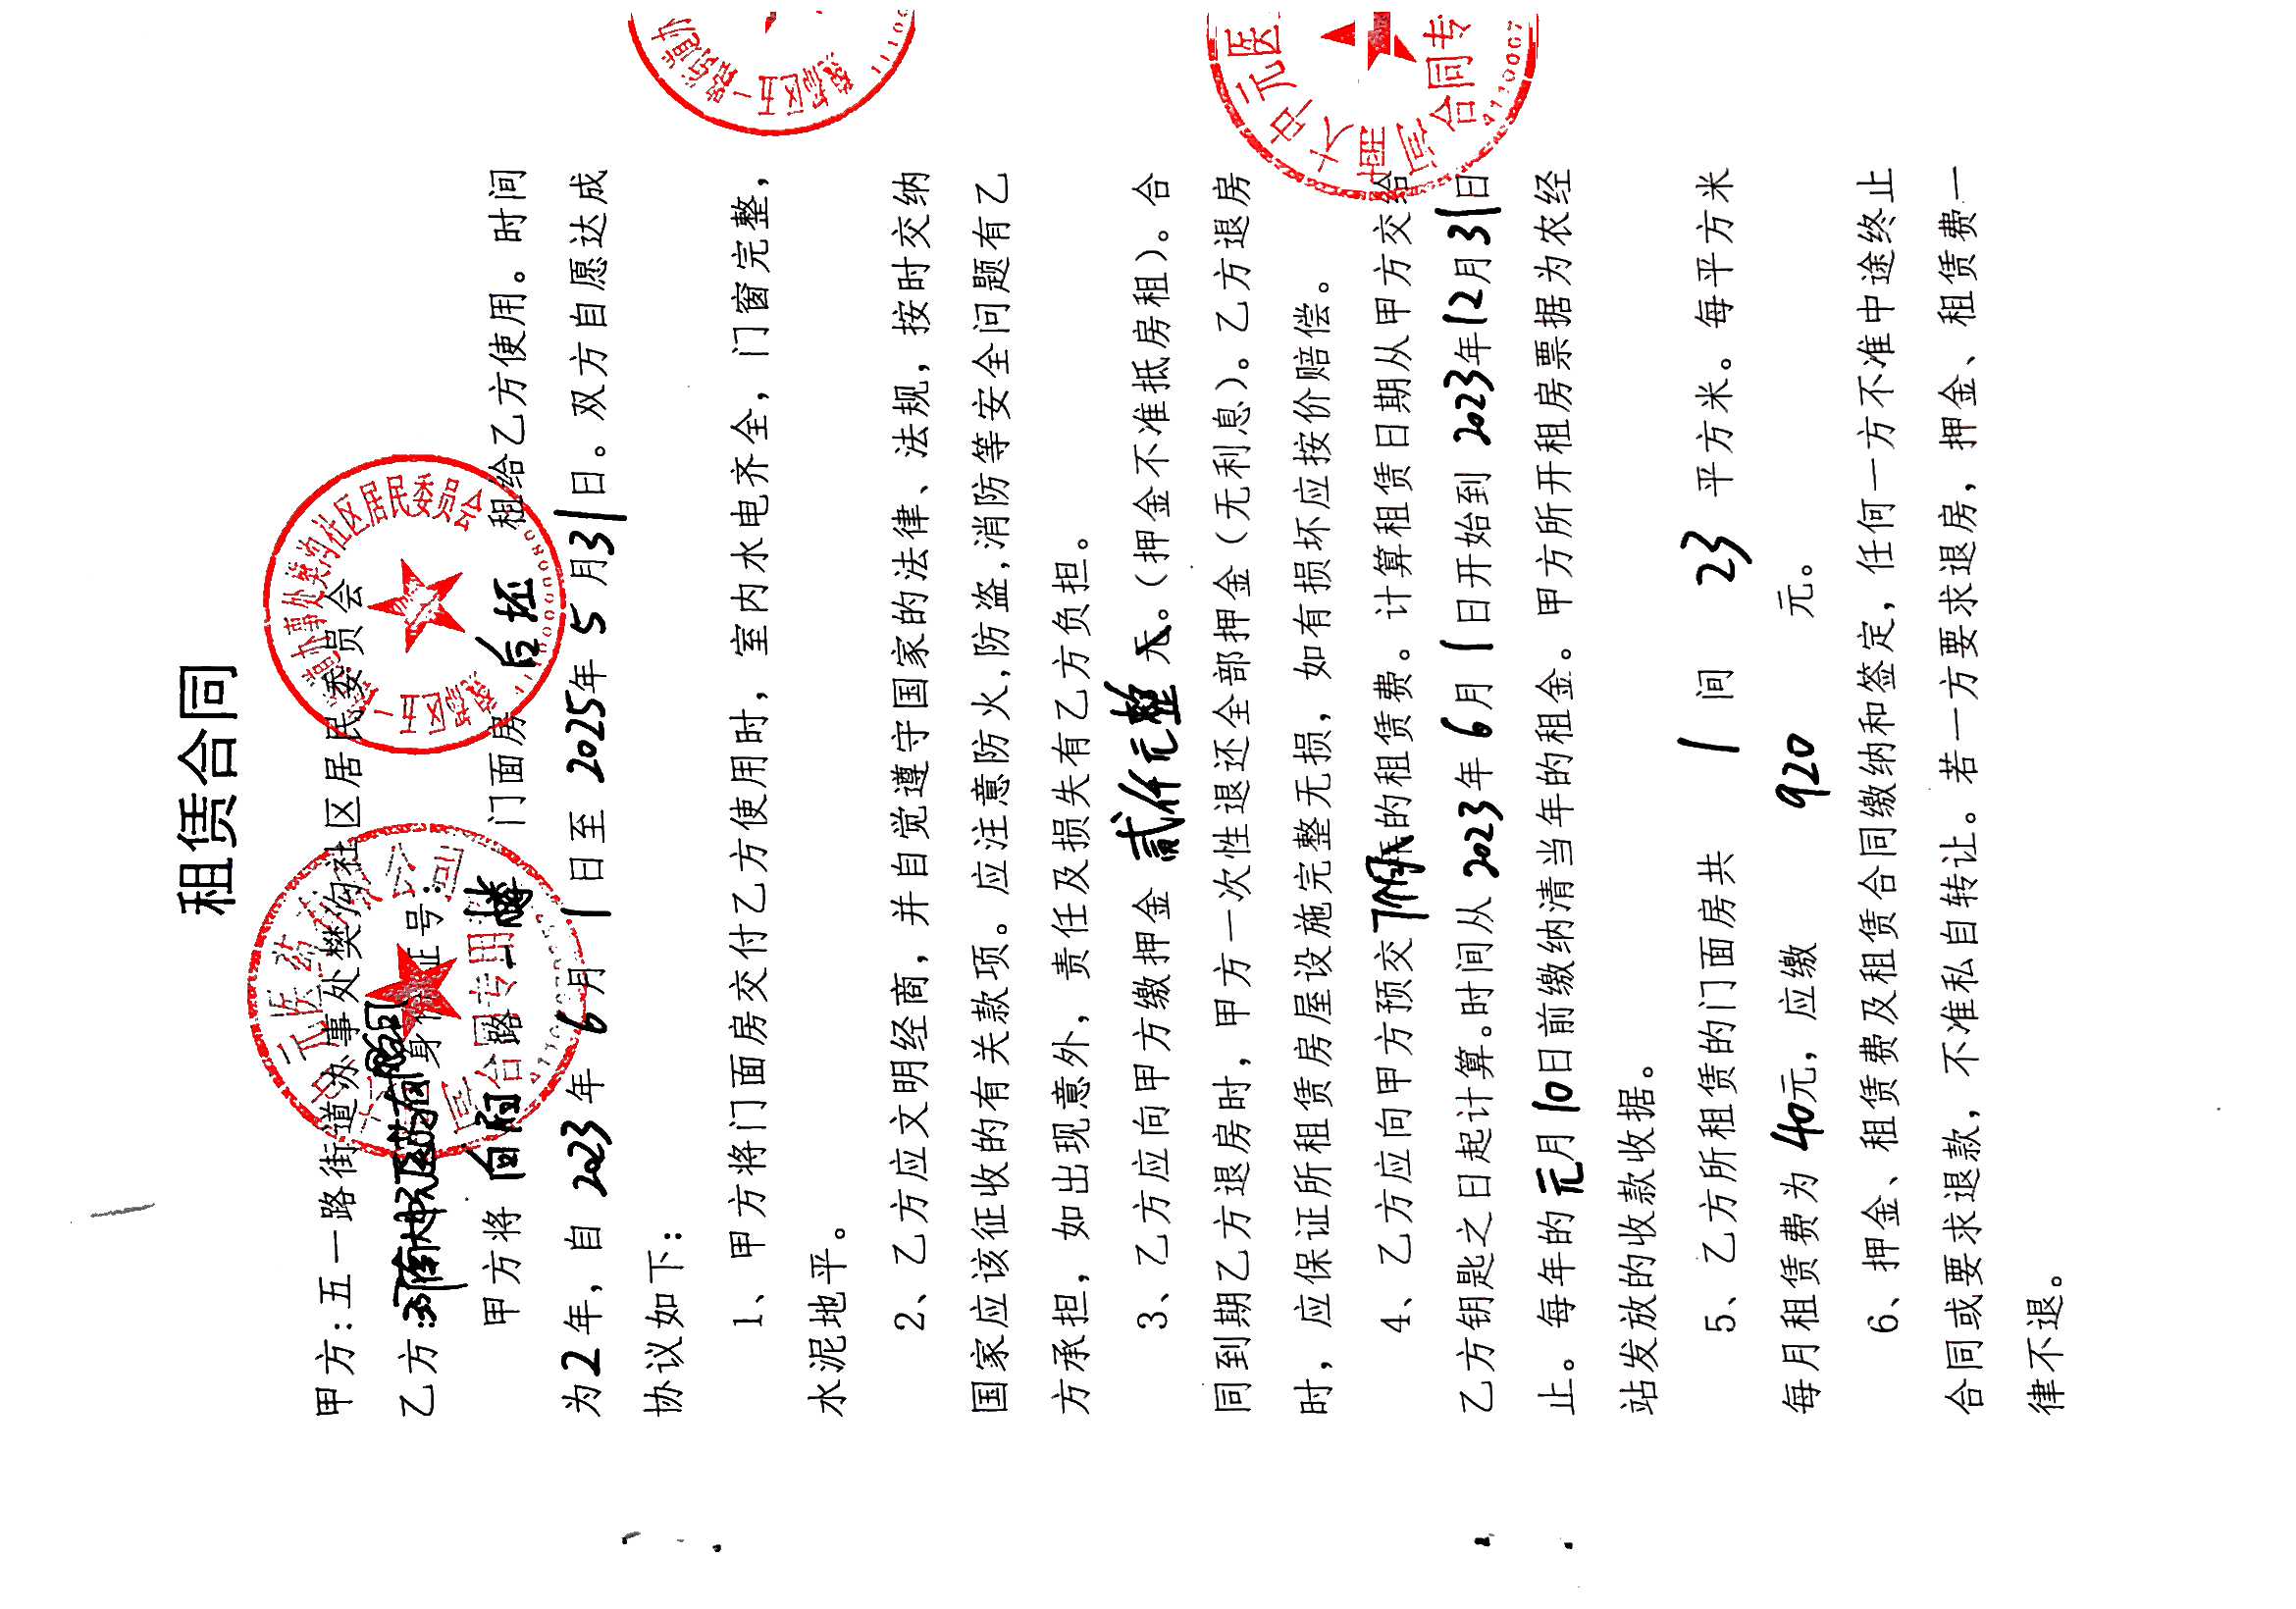 租赁合同
甲方:五一路街道办事处樊沟社区居民委员会
乙方:河南大中元医药有限公司身份证号:
甲方将 路 门面房 租给乙方使用。时间
为2年,自 2023 年 6 月 1 日至 2025年 5 月31日。双方自愿达成
协议如下:
1、甲方将门面房交付乙方使用时,室内水电齐全,门窗完整,
水泥地平。
2、乙方应文明经商,并自觉遵守国家的法律、法规,按时交纳
国家应该征收的有关款项。应注意防火,防盗,消防等安全问题有乙
方承担,如出现意外,责任及损失有乙方负担。
3、乙方应向甲方缴押金 贰仟元整 元。(押金不准抵房租)。合
同到期乙方退房时,甲方一次性退还全部押金(无利息)。乙方退房
时,应保证所租赁房屋设施完整无损,如有损坏应按价赔偿。
4、乙方应向甲方预交7个月的租赁费。计算租赁日期从甲方交给
乙方钥匙之日起计算。时间从 2023年 6 月 1 日开始到 2023年12月31日
止。每年的元月10日前缴纳清当年的租金。甲方所开租房票据为农经
站发放的收款收据。
5、乙方所租赁的门面房共 1 间 23 平方米。每平方米
每月租赁费为 40元,应缴 920 元。
6、押金、租赁费及租赁合同缴纳和签定,任何一方不准中途终止
合同或要求退款,不准私自转让。若一方要求退房,押金、租赁费一
律不退。